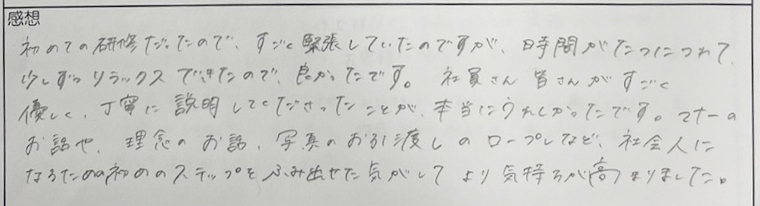 感想
初めての研修だったので、すごく緊張していたのですが、時間がたつにつれて、
少しずつリラックスできたので、良かったです。 社員さん皆さんがすごく
優しく、丁寧に説明してくださったことが、本当にうれしかったです。マナーの
お話や、理念のお話、写真のお引渡しのロープレなど、社会人に
なるための初めのステップをふみ出せた気がしてより気持ちが高まりました。